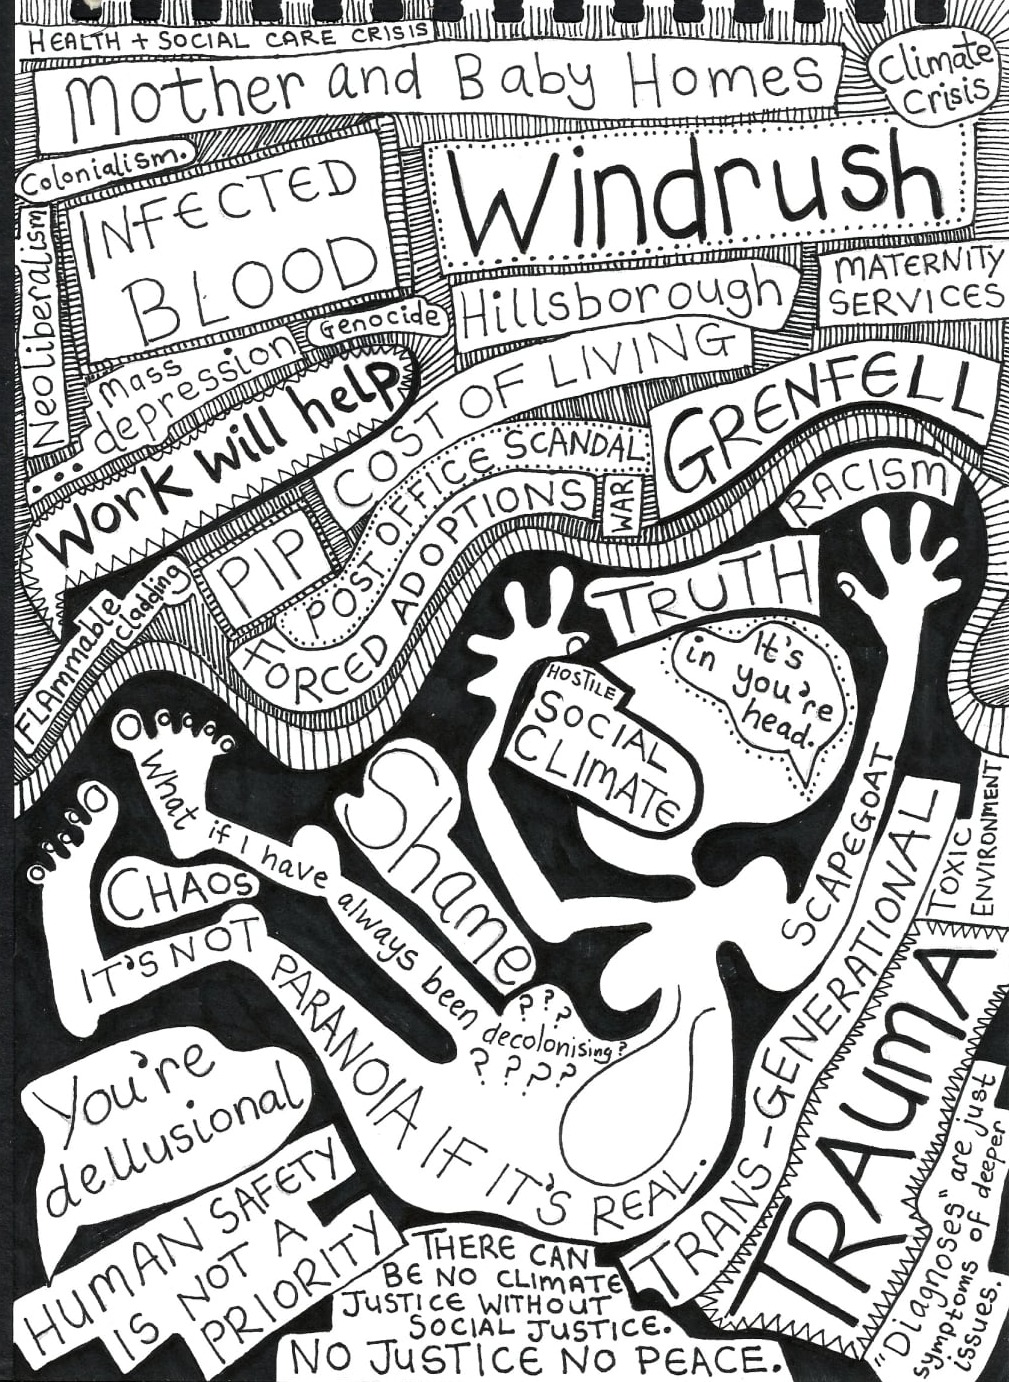 HEALTH + SOCIAL CARE CRISIS
Mother and Baby Homes
Climate
Crisis
Colonialism.
INFECTED
BLOOD
Windrush
Neoliberalism
MATERNITY
SERVICES
Hillsborough
Genocide
mass
depression
...
Work will help
COST OF LIVING
GRENFELL
POST OFFICE SCANDAL
RACISM
FORCED ADOPTIONS
WAR
PIP
FLAMMABLE
cladding
TRUTH
It's
in you're
head.
HOSTILE
SOCIAL
CLIMATE
What
if I have
always been
decolonising?
? ? ?
? ? ? ?
Shame
CHAOS
IT'S NOT
PARANOIA IF IT'S REAL.
SCAPEGOAT
TOXIC
ENVIRONMENT
TRANS-GENERATIONAL
TRAUMA
You're
dellusional
HUMAN SAFETY
IS NOT A
PRIORITY
THERE CAN
BE NO CLIMATE
JUSTICE WITHOUT
SOCIAL JUSTICE.
NO JUSTICE NO PEACE.
"Diagnoses" are just
symptoms of deeper
issues.